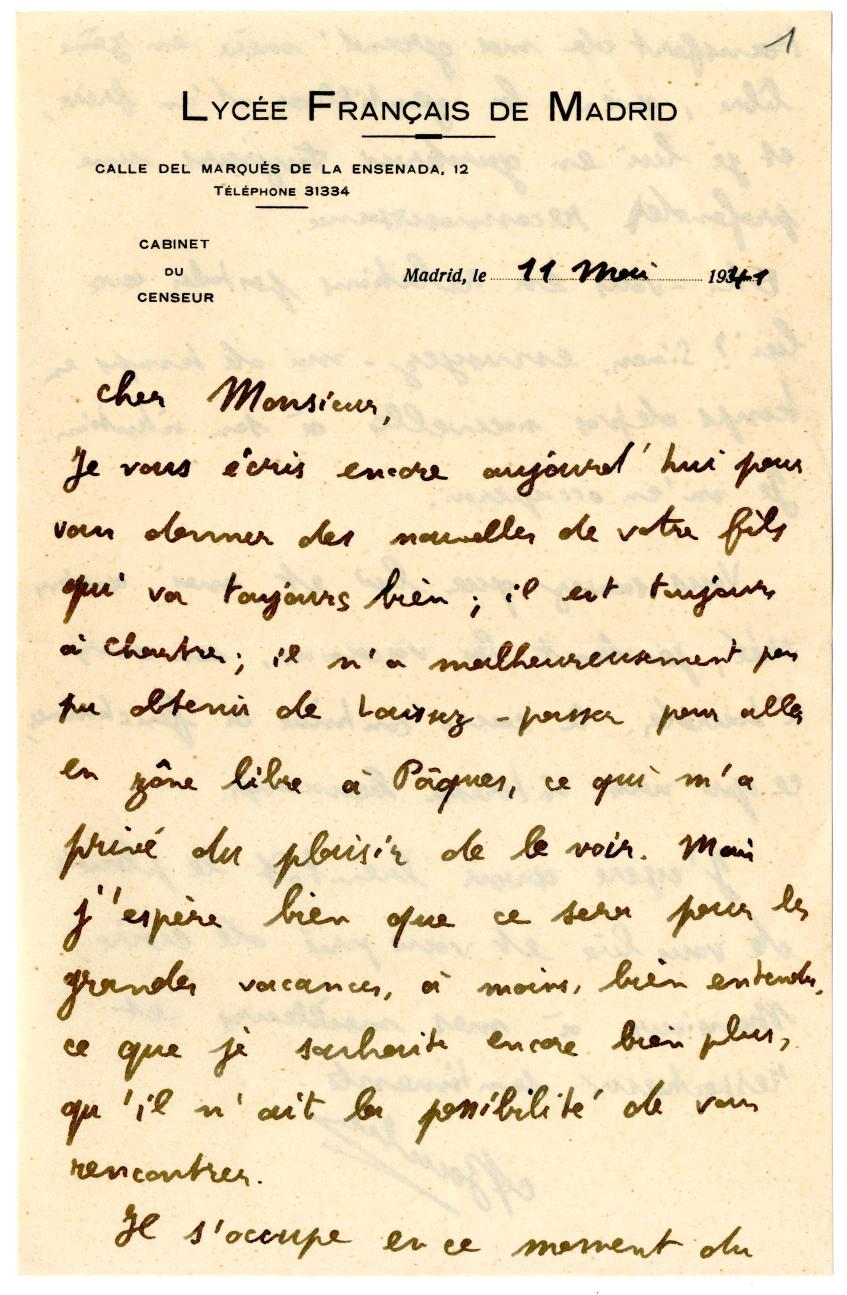 1
LYCÉE FRANÇAIS DE MADRID
CALLE DEL MARQUÉS DE LA ENSENADA, 12
TÉLÉPHONE 31334
CABINET
DU
CENSEUR
Madrid, le 11 Mai 1941
Cher Monsieur,
Je vous écris encore aujourd'hui pour
vous donner des nouvelles de votre fils
qui va toujours bien ; il est toujours
à Chartres ; il n'a malheureusement pas
pu obtenir de Laissez-passer pour aller
en zône libre à Pâques, ce qui m'a
privé du plaisir de le voir. Mais
j'espère bien que ce sera pour les
grandes vacances, à moins, bien entendu,
ce que je souhaite encore bien plus,
qu'il n'ait la possibilité de vous
rencontrer.
Il s'occupe en ce moment du